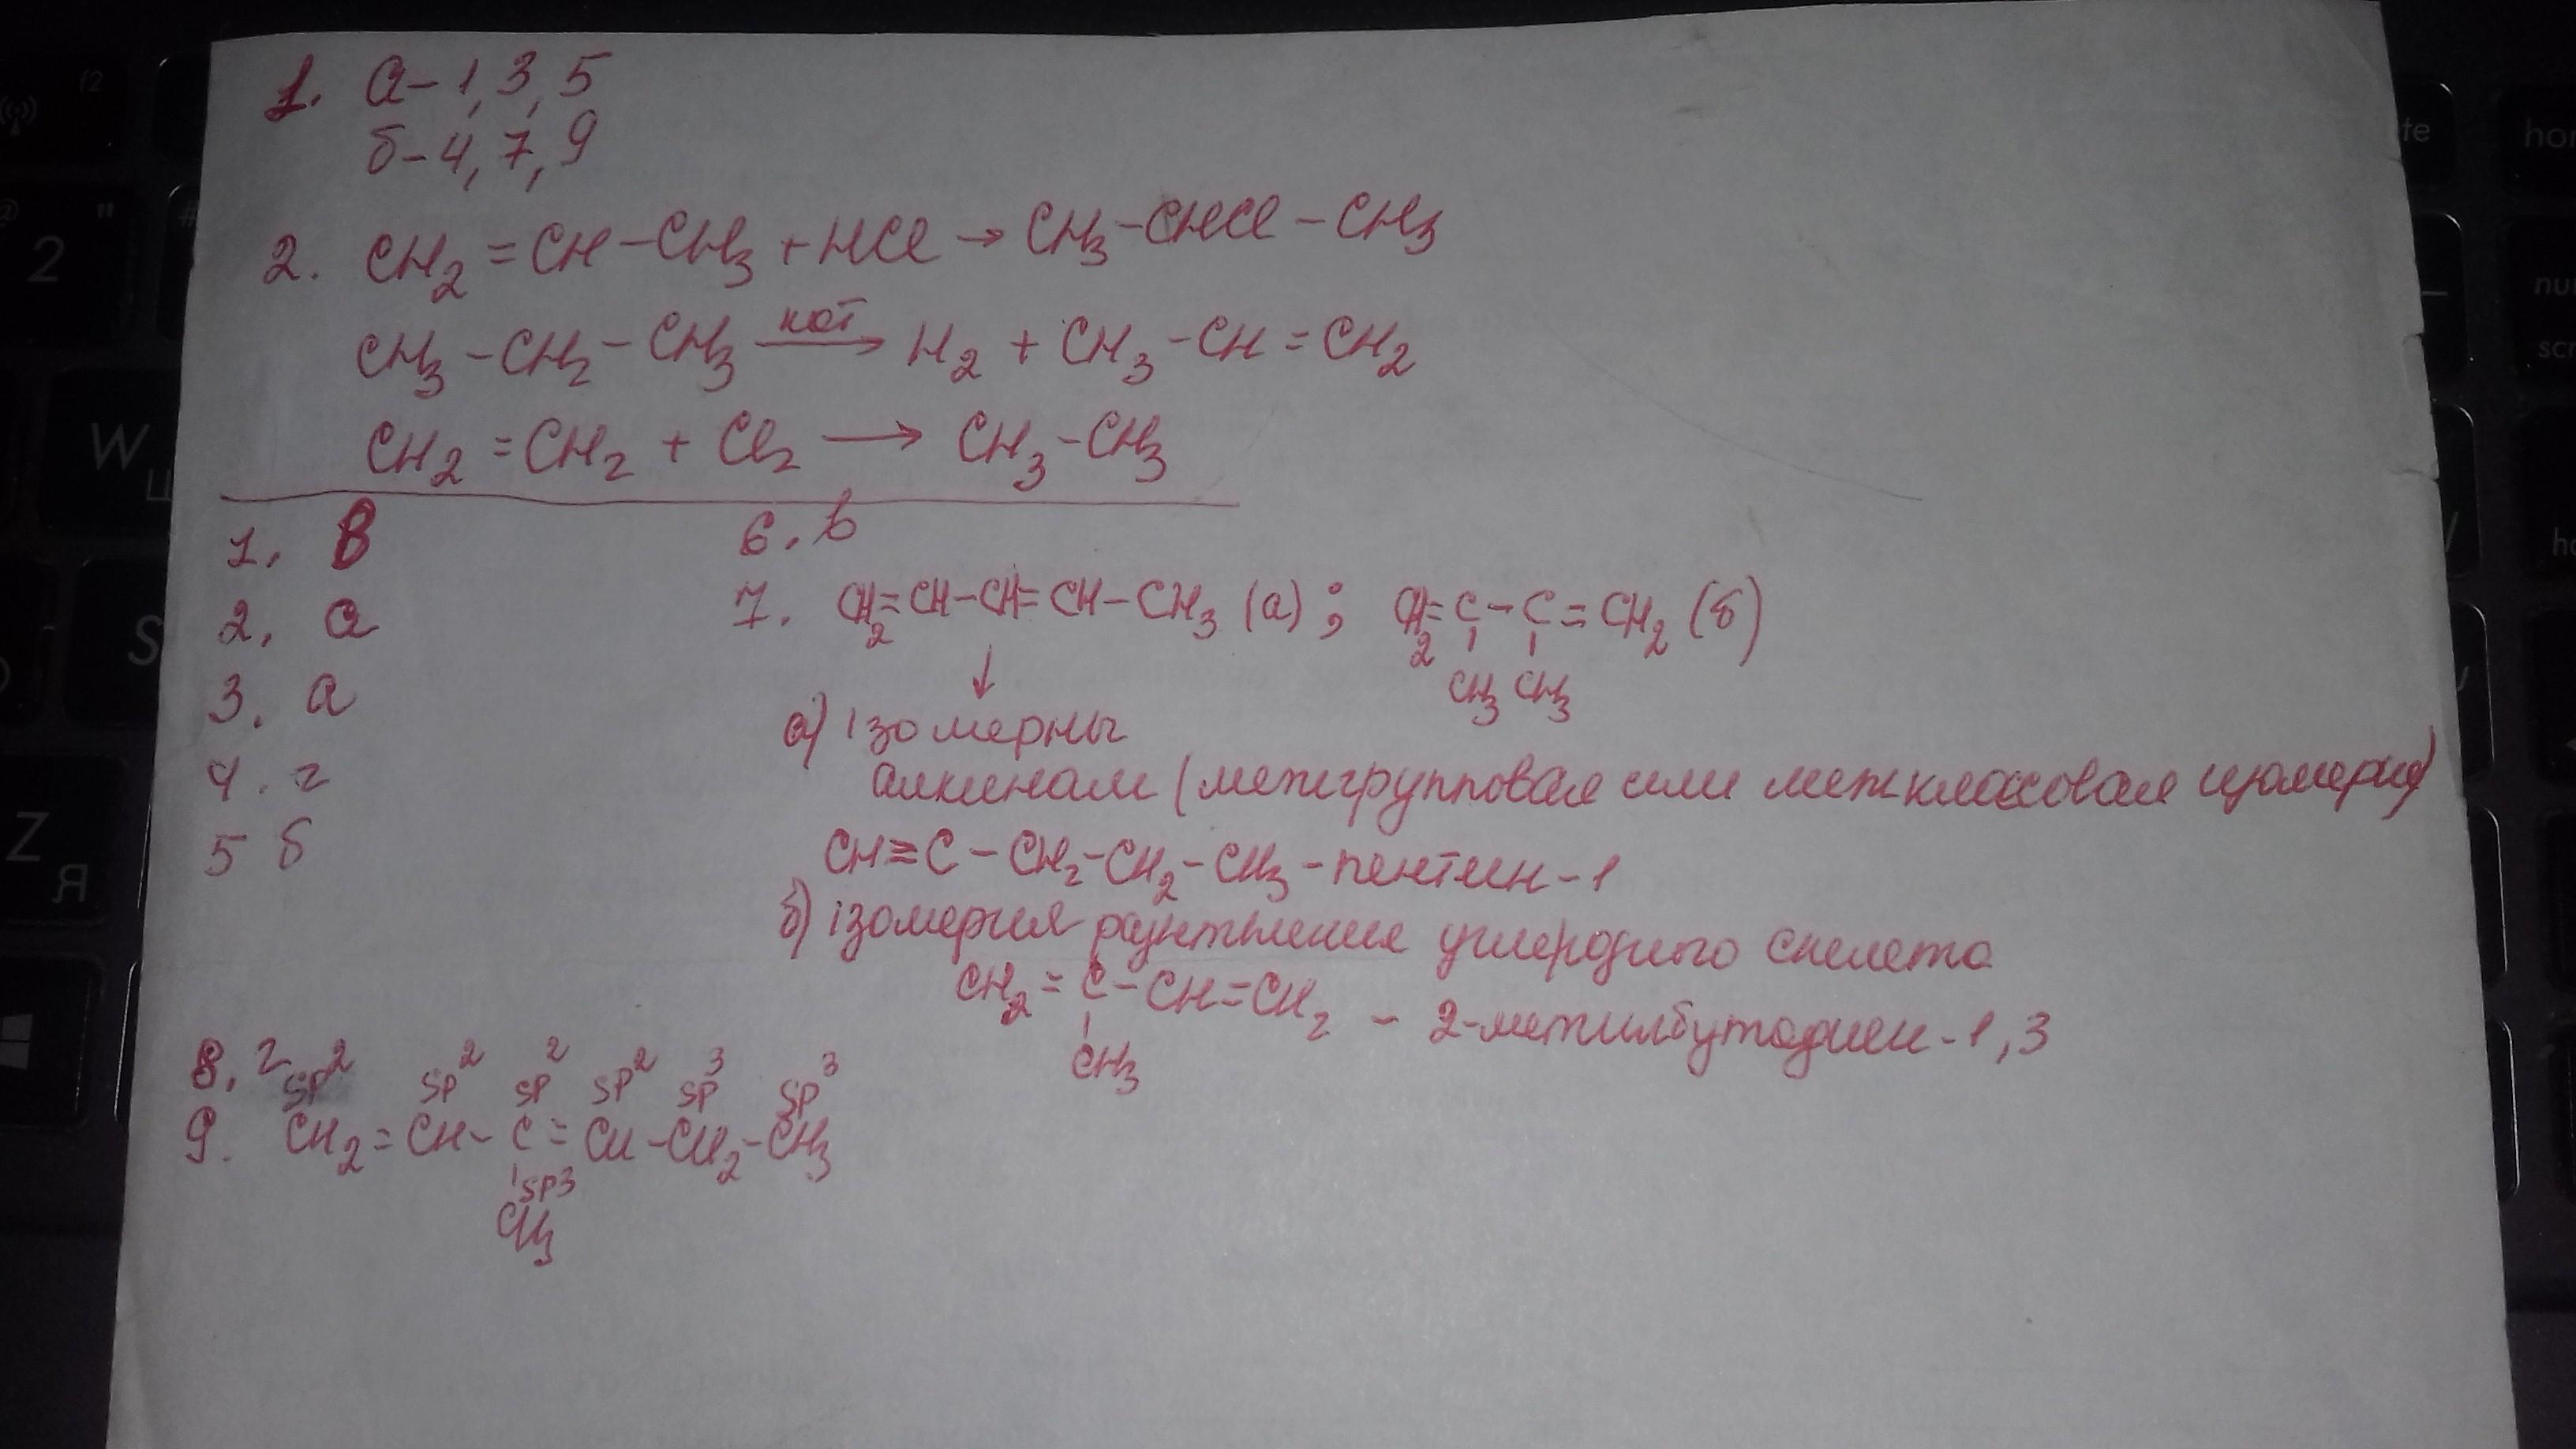 1. а – 1, 3, 5
б – 4, 7, 9
2. CH2 = CH – CH3 + HCl → CH3 – CHCl – CH3
CH3 – CH2 – CH3 кат → H2 + CH3 – CH = CH2
CH2 = CH2 + Cl2 → CH3 – CH3
1. В
2. а
3. а
4. г
5 б
6. в
7. CH2=CH–CH=CH–CH3 (а); CH2=C–C=CH2 (б)
CH3 CH3
↓
а) ізомерны
алкинам (межгрупповая или межклассовая изомерия)
CH≡C – CH2–CH2–CH3 – пентин – 1
б) ізомерия углеродного скелета
CH2 = C – CH=CH2 – 2-метилбутадиен – 1, 3
CH3
8. г
sp2 sp2 sp2 sp2 sp3 sp3
9. CH2 = CH – C = CH – CH2 – CH3
sp3
CH3
W
Z
Я
S
2
"
@
#
f2